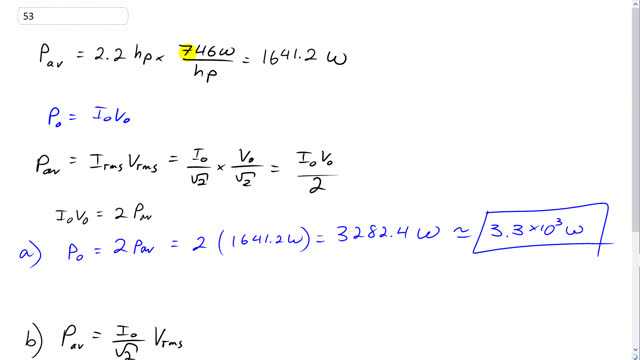 53
P_av = 2.2 hp × 746W/hp = 1641.2 W
P_o = I_o V_o
P_av = I_rms V_rms = I_o/√2 × V_o/√2 = I_o V_o/2
I_o V_o = 2 P_av
a) P_o = 2 P_av = 2 (1641.2 W) = 3282.4 W ≃ 3.3×10³ W
b) P_av = I_o/√2 V_rms